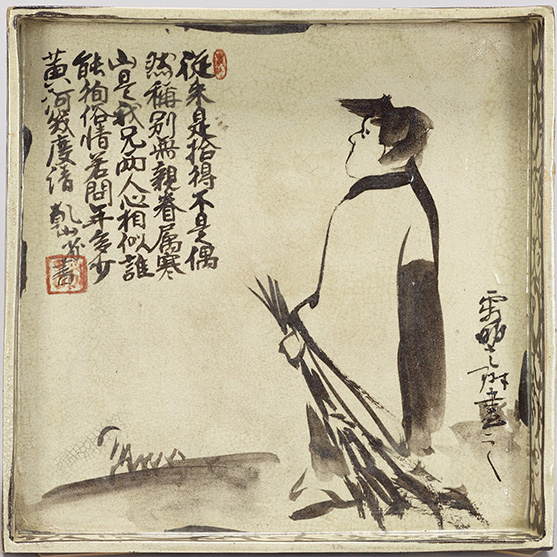 從来是拾得不是偶
然稱別無親眷属寒
山是我兄兩人心相似誰
能徇俗情若問年多少
黄河幾度清 乾山省書
寂明光琳畫之